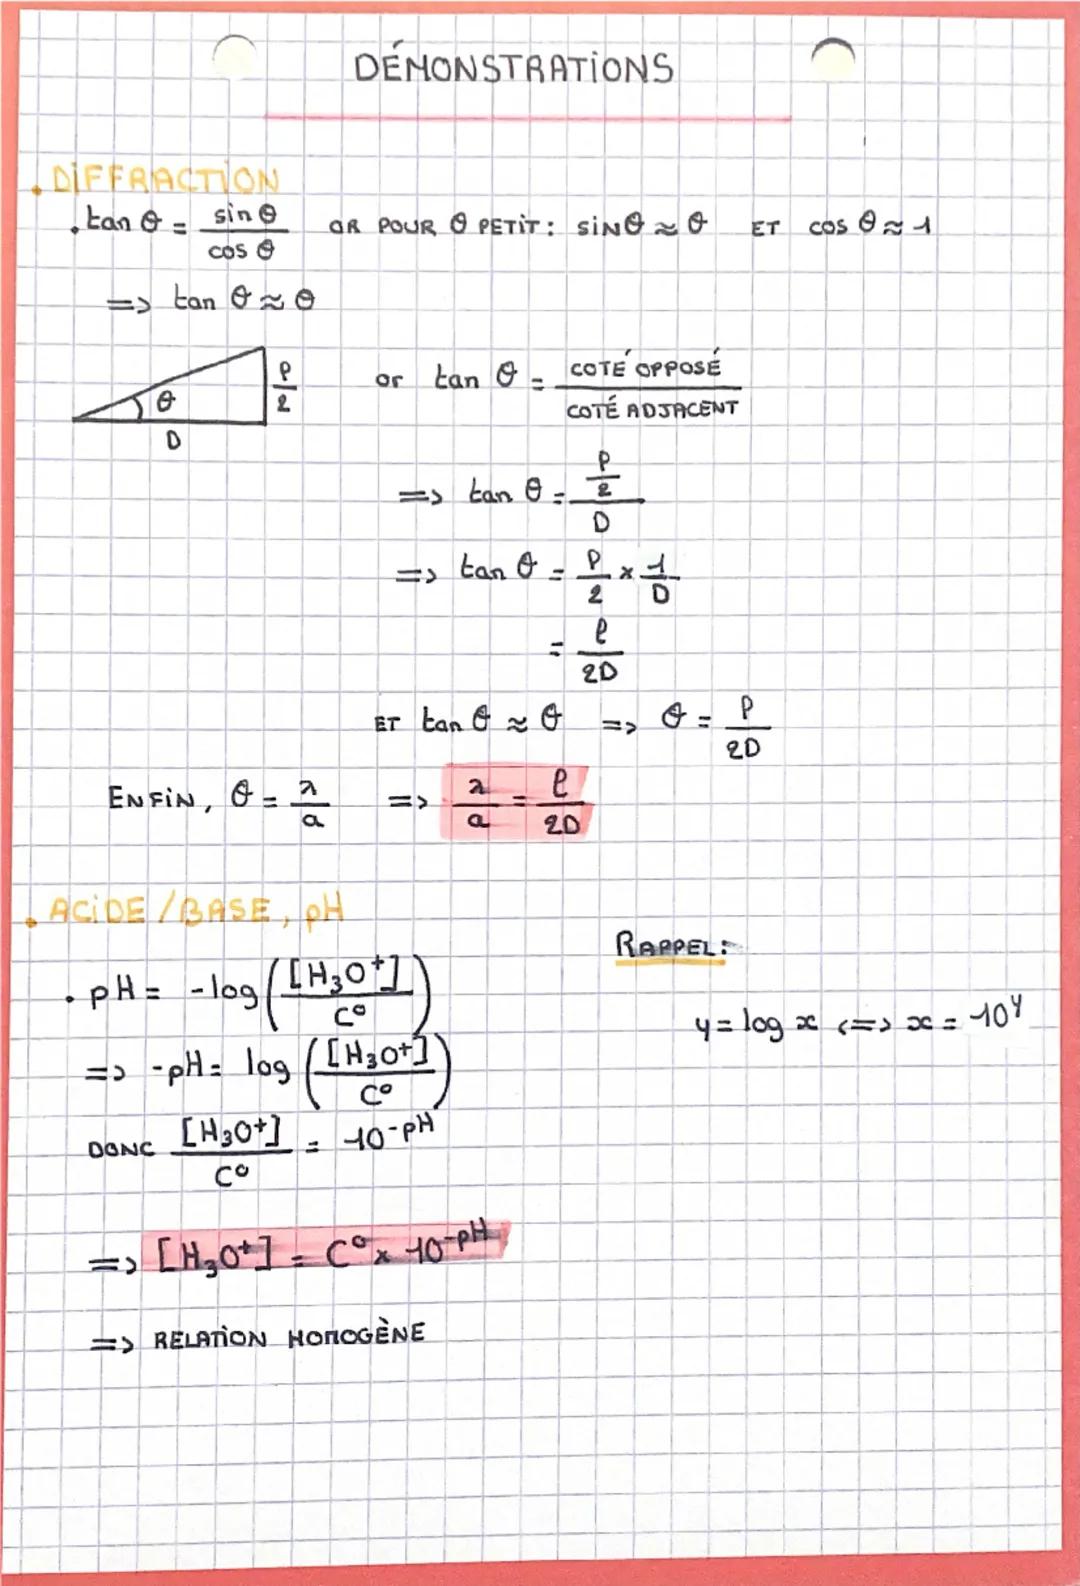 DÉMONSTRATIONS
. DIFFRACTION
. tan θ = sin θ / cos θ OR POUR θ PETIT : sin θ ≈ θ ET cos θ ≈ 1
=> tan θ ≈ θ
θ D ℓ/2
or tan θ = COTÉ OPPOSÉ / COTÉ ADJACENT
=> tan θ = (ℓ/2) / D
=> tan θ = ℓ/2 × 1/D
= ℓ/2D
ET tan θ ≈ θ => θ = ℓ/2D
ENFIN, θ = λ/a => λ/a = ℓ/2D
. ACIDE / BASE, pH
RAPPEL :
. pH = -log([H₃O⁺]/C°)
y = log x <=> x = 10^y
=> -pH = log([H₃O⁺]/C°)
DONC [H₃O⁺]/C° = 10^-pH
=> [H₃O⁺] = C° × 10^-pH
=> RELATION HOMOGÈNE